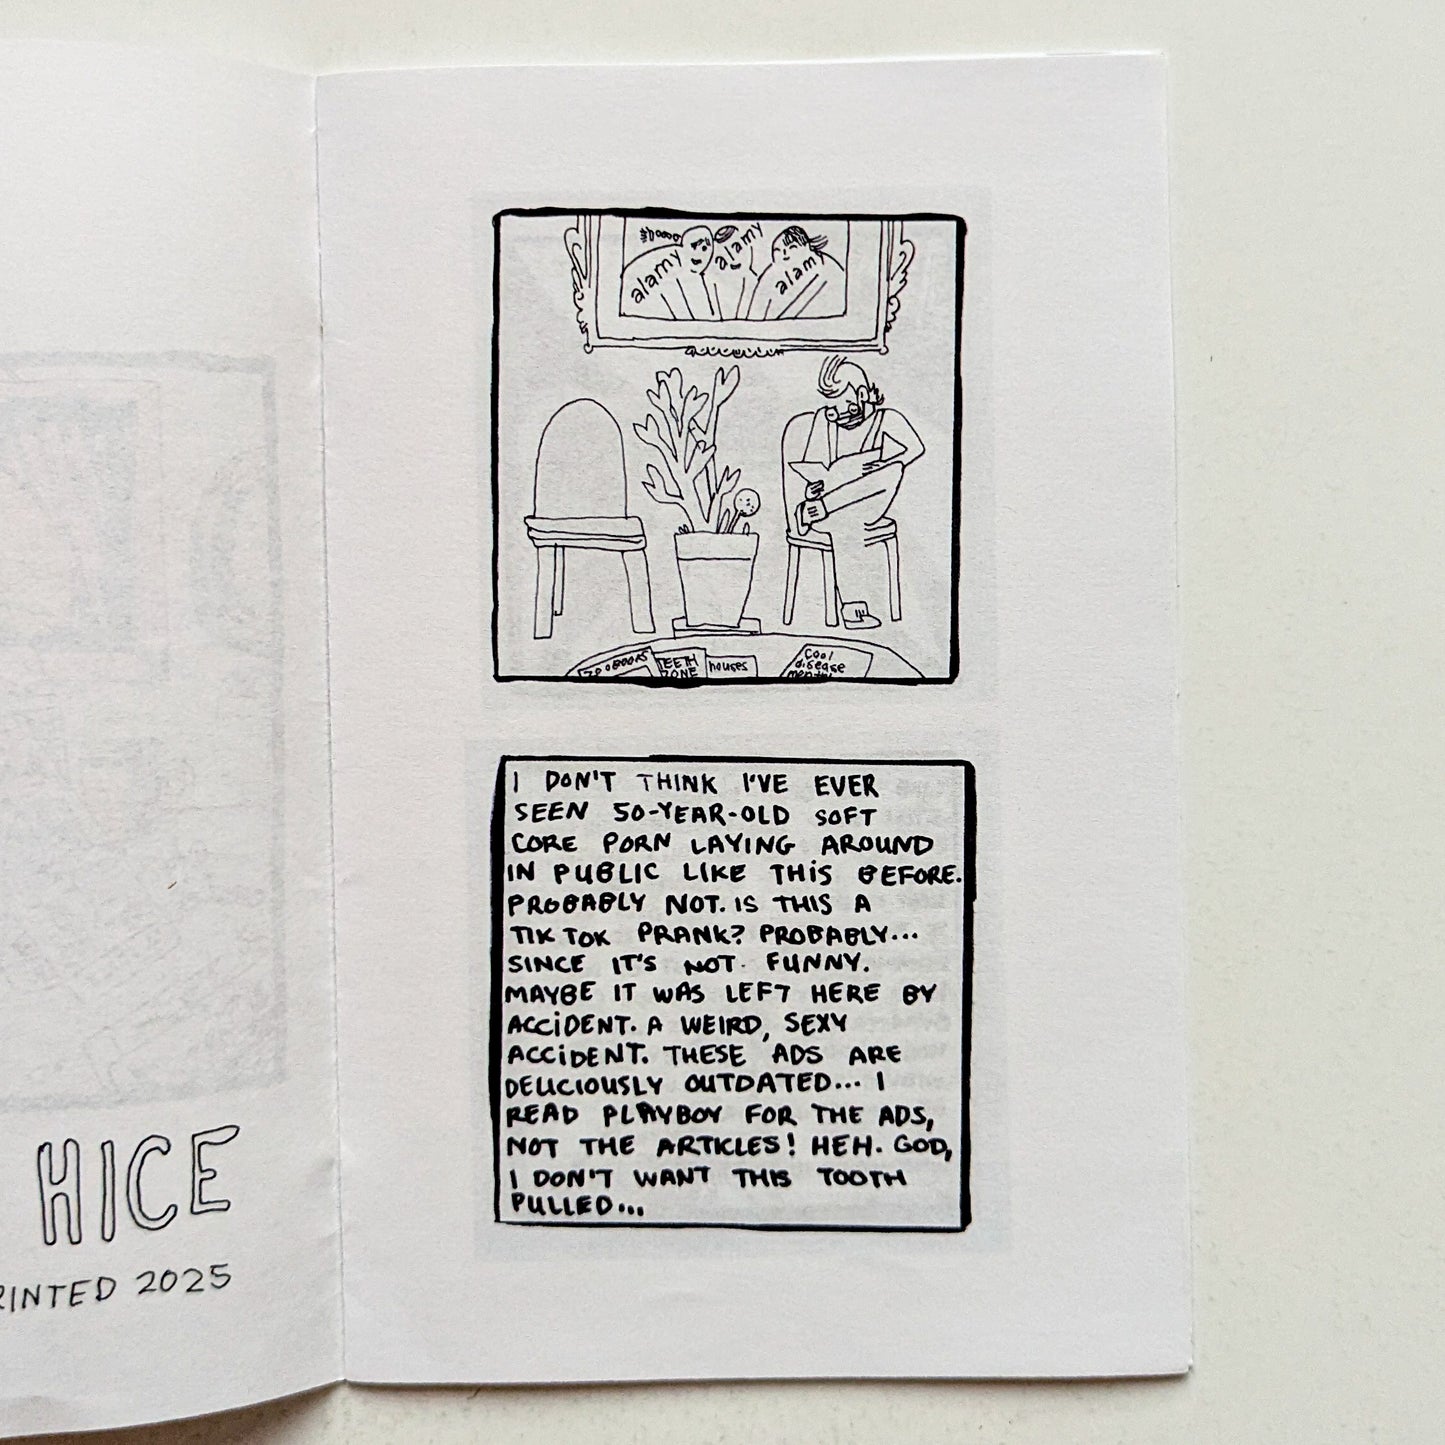 HICE
PRINTED 2025
alamy
alamy
alamy
TEETH
ZONE
houses
Cool
disease
I DON'T THINK I'VE EVER
SEEN 50-YEAR-OLD SOFT
CORE PORN LAYING AROUND
IN PUBLIC LIKE THIS BEFORE.
PROBABLY NOT. IS THIS A
TIK TOK PRANK? PROBABLY...
SINCE IT'S NOT FUNNY.
MAYBE IT WAS LEFT HERE BY
ACCIDENT. A WEIRD, SEXY
ACCIDENT. THESE ADS ARE
DELICIOUSLY OUTDATED... I
READ PLAYBOY FOR THE ADS,
NOT THE ARTICLES! HEH. GOD,
I DON'T WANT THIS TOOTH
PULLED...